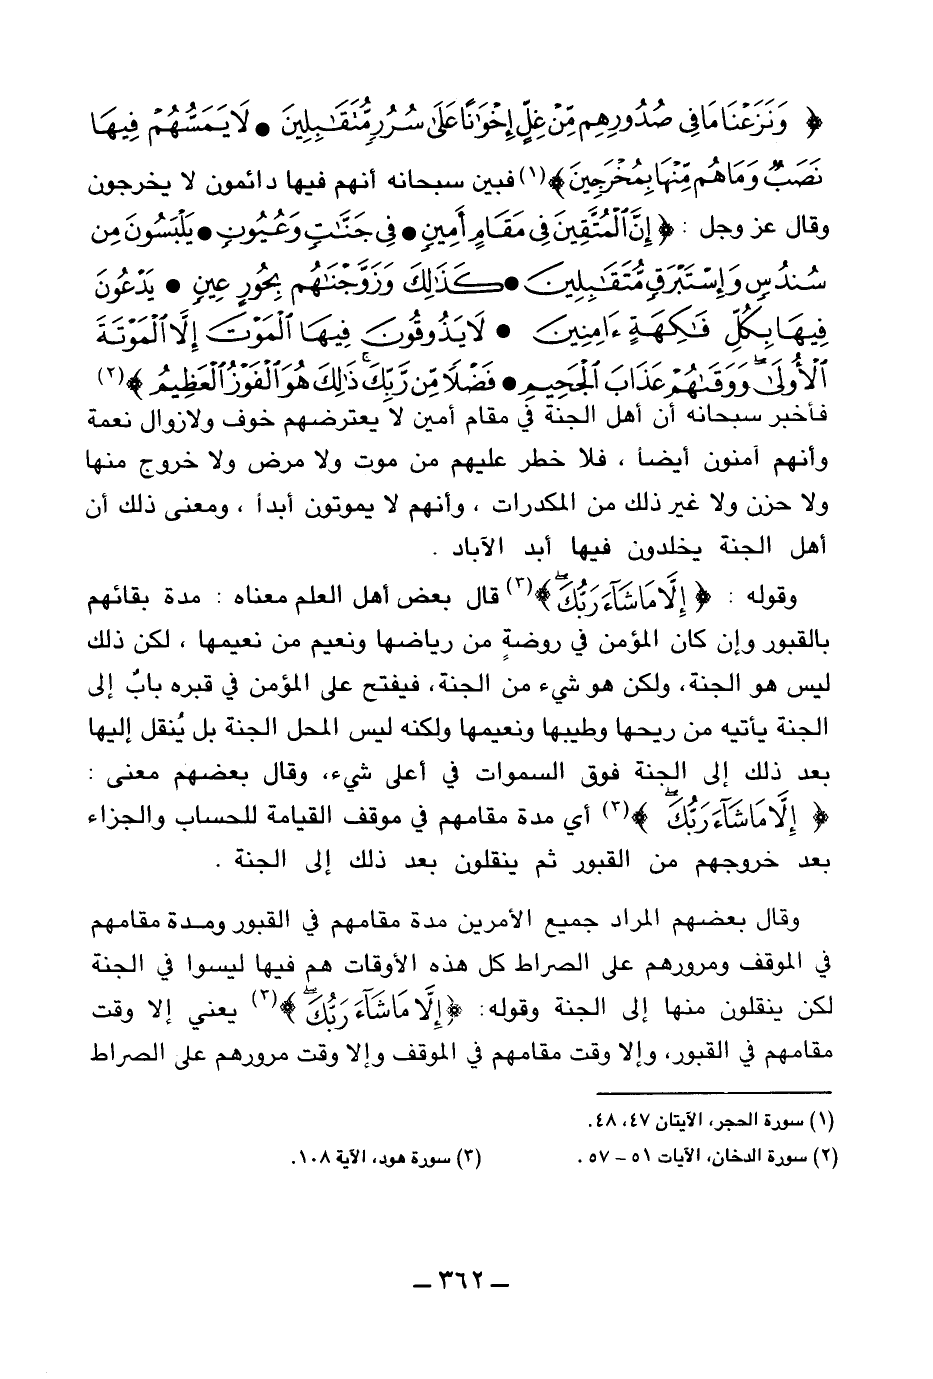 ﴿ وَنَزَعْنَا مَا فِي صُدُورِهِم مِّنْ غِلٍّ إِخْوَٰنًا عَلَىٰ سُرُرٍ مُّتَقَٰبِلِينَ ● لَا يَمَسُّهُمْ فِيهَا
نَصَبٌ وَمَا هُم مِّنْهَا بِمُخْرَجِينَ ﴾(١) فبين سبحانه أنهم فيها دائمون لا يخرجون
وقال عز وجل : ﴿ إِنَّ ٱلْمُتَّقِينَ فِي مَقَامٍ أَمِينٍ ● فِي جَنَّٰتٍ وَعُيُونٍ ● يَلْبَسُونَ مِن
سُندُسٍ وَإِسْتَبْرَقٍ مُّتَقَٰبِلِينَ ● كَذَٰلِكَ وَزَوَّجْنَٰهُم بِحُورٍ عِينٍ ● يَدْعُونَ
فِيهَا بِكُلِّ فَٰكِهَةٍ ءَامِنِينَ ● لَا يَذُوقُونَ فِيهَا ٱلْمَوْتَ إِلَّا ٱلْمَوْتَةَ
ٱلْأُولَىٰ ۖ وَوَقَىٰهُمْ عَذَابَ ٱلْجَحِيمِ ● فَضْلًا مِّن رَّبِّكَ ۚ ذَٰلِكَ هُوَ ٱلْفَوْزُ ٱلْعَظِيمُ ﴾(٢)
فأخبر سبحانه أن أهل الجنة في مقام أمين لا يعترضهم خوف ولازوال نعمة
وأنهم آمنون أيضا ، فلا خطر عليهم من موت ولا مرض ولا خروج منها
ولا حزن ولا غير ذلك من المكدرات ، وأنهم لا يموتون أبدا ، ومعنى ذلك أن
أهل الجنة يخلدون فيها أبد الآباد .
وقوله : ﴿ إِلَّا مَا شَآءَ رَبُّكَ ۖ ﴾(٣) قال بعض أهل العلم معناه : مدة بقائهم
بالقبور وإن كان المؤمن في روضةٍ من رياضها ونعيم من نعيمها ، لكن ذلك
ليس هو الجنة، ولكن هو شيء من الجنة، فيفتح على المؤمن في قبره بابٌ إلى
الجنة يأتيه من ريحها وطيبها ونعيمها ولكنه ليس المحل الجنة بل يُنقل إليها
بعد ذلك إلى الجنة فوق السموات في أعلى شيء، وقال بعضهم معنى :
﴿ إِلَّا مَا شَآءَ رَبُّكَ ۖ ﴾(٣) أي مدة مقامهم في موقف القيامة للحساب والجزاء
بعد خروجهم من القبور ثم ينقلون بعد ذلك إلى الجنة .
وقال بعضهم المراد جميع الأمرين مدة مقامهم في القبور ومدة مقامهم
في الموقف ومرورهم على الصراط كل هذه الأوقات هم فيها ليسوا في الجنة
لكن ينقلون منها إلى الجنة وقوله: ﴿ إِلَّا مَا شَآءَ رَبُّكَ ۖ ﴾(٣) يعني إلا وقت
مقامهم في القبور، وإلا وقت مقامهم في الموقف وإلا وقت مرورهم على الصراط
(١) سورة الحجر، الآيتان ٤٧، ٤٨.
(٢) سورة الدخان، الآيات ٥١ – ٥٧ . (٣) سورة هود، الآية ١٠٨.
– ٣٦٢ –